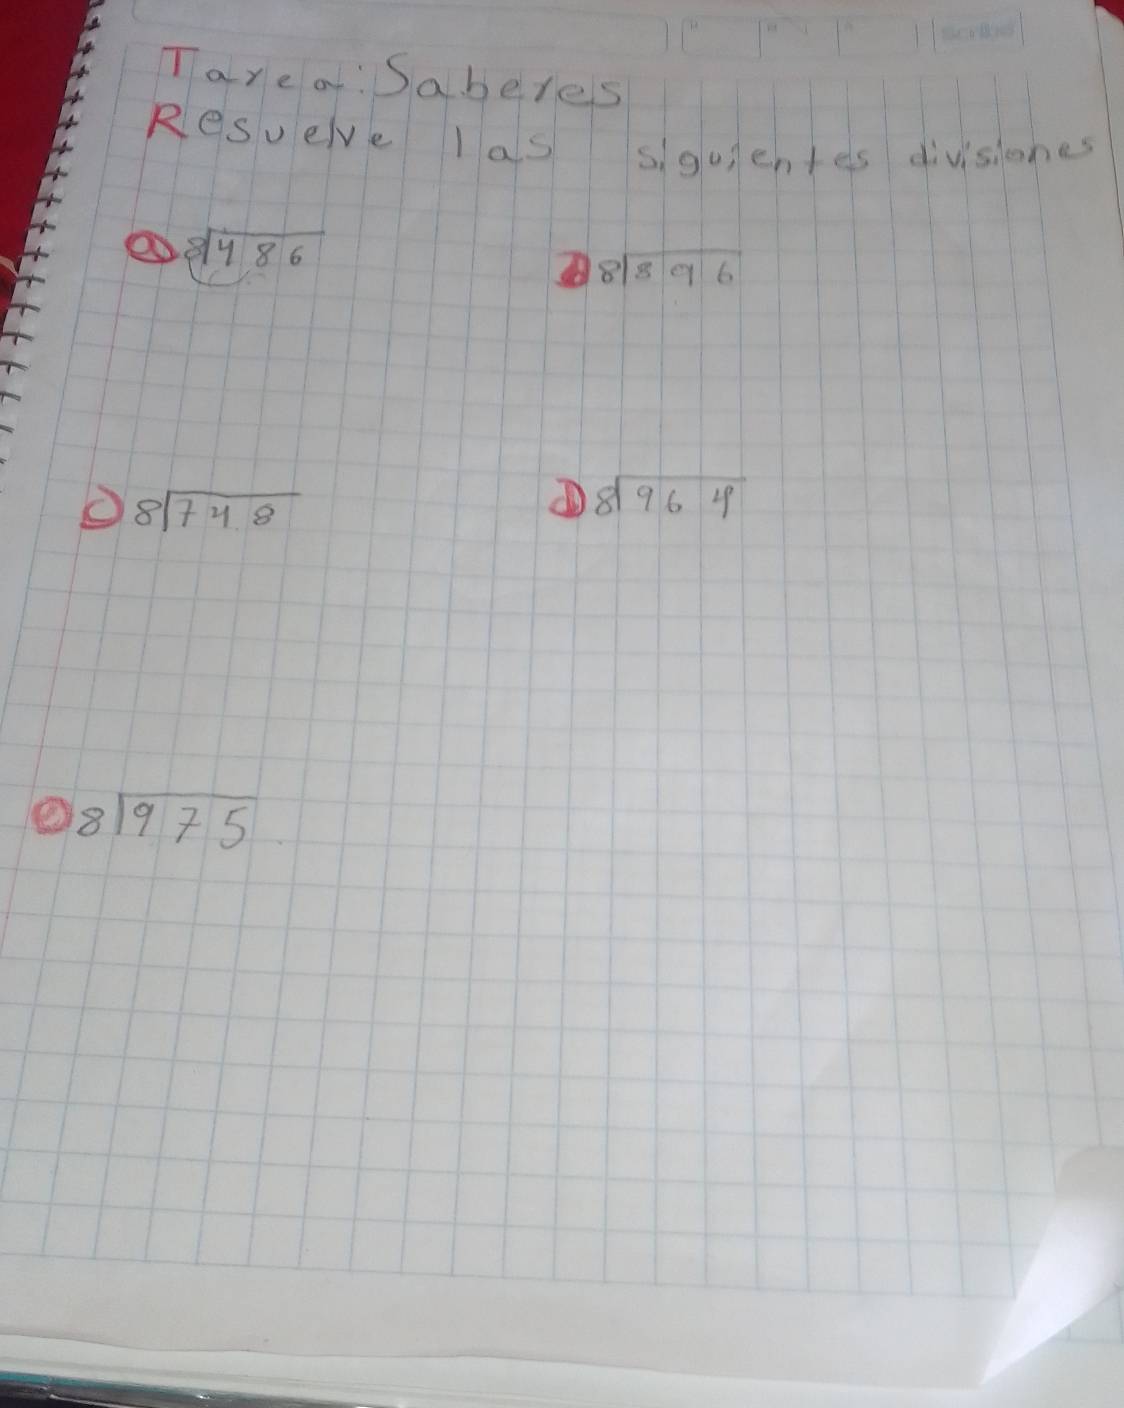 Tarea: Saberes
Resuelve las siguientes divisiones
a) 8⟌486
b) 8⟌896
c) 8⟌748
d) 8⟌964
e) 8⟌975